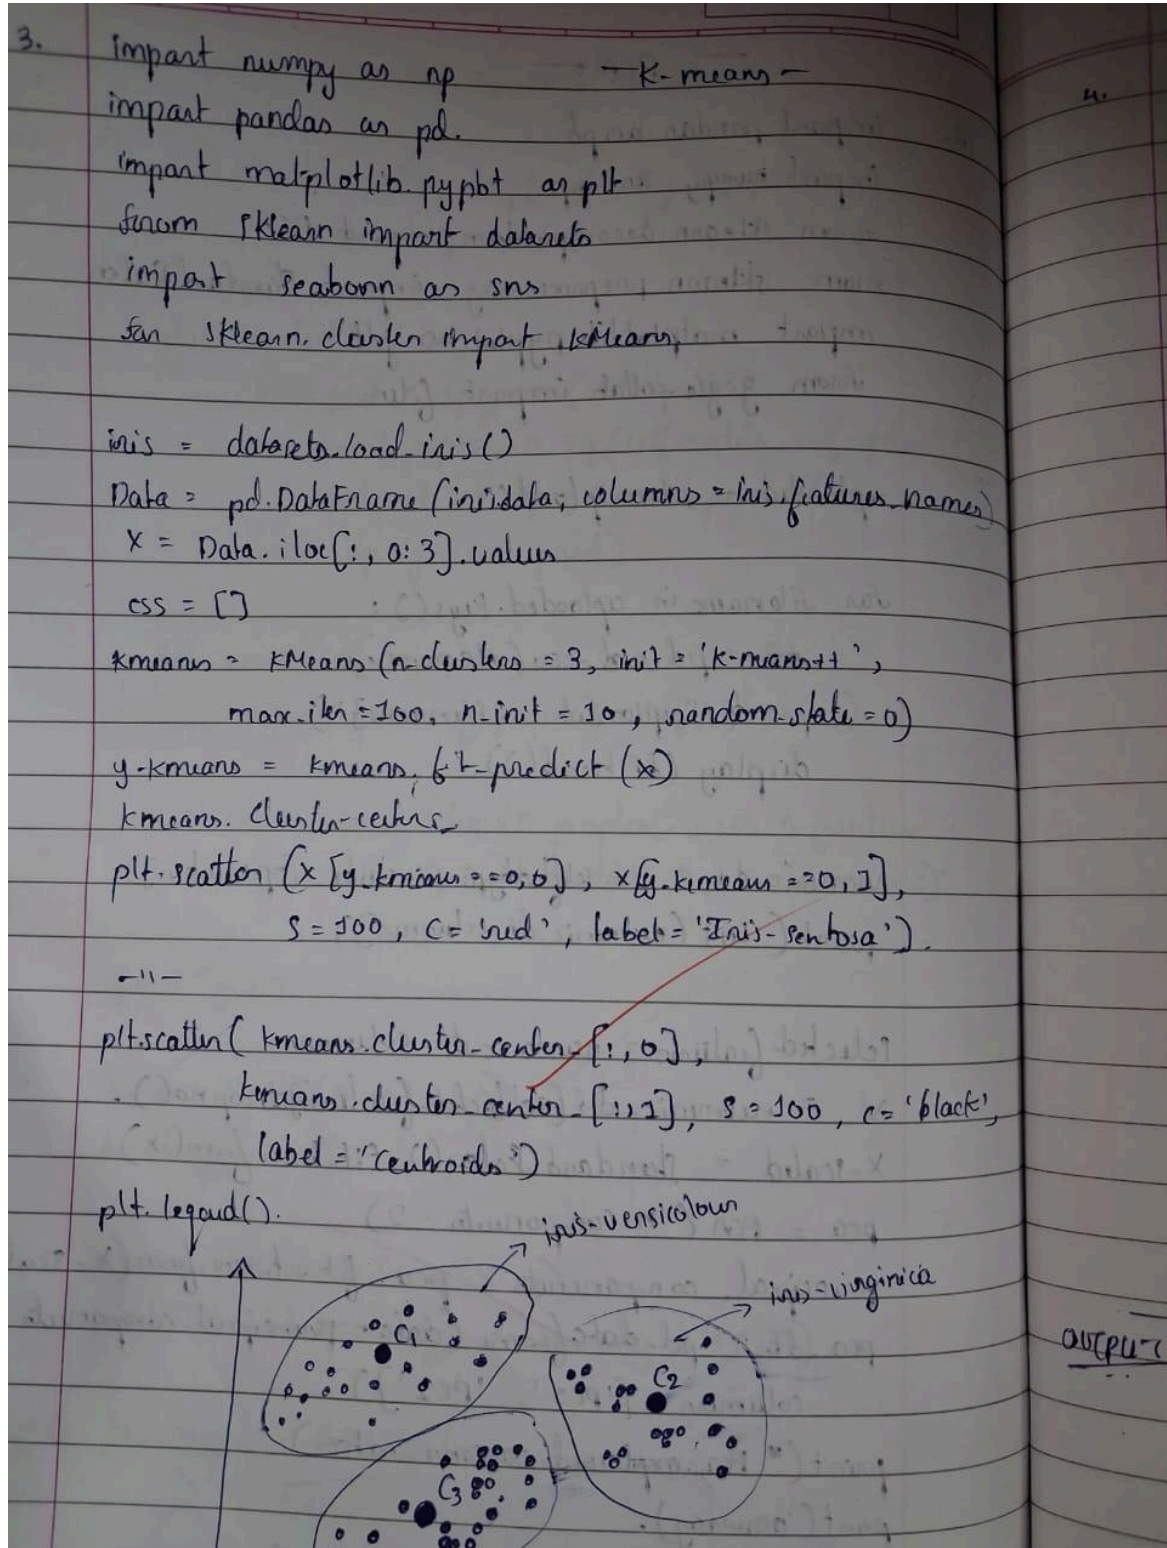 3.
import numpy as np
- K-means -
import pandas as pd.
import matplotlib.pyplot as plt
from sklearn import datasets
import seaborn as sns
for sklearn.cluster import KMeans
4.
iris = datasets.load_iris()
Data = pd.DataFrame (iris.data, columns = iris.features_names)
X = Data.iloc[:, 0:3].values
css = []
kmeans = KMeans (n-clusters = 3, init = 'k-means++',
max-iter = 100, n-init = 10, random-state = 0)
y-kmeans = kmeans.fit-predict (x)
kmeans. cluster-centers_
plt.scatter (x [y-kmeans == 0, 0], x[y-kmeans == 0, 1],
s = 100, c = 'red', label = 'Iris-sentosa').
-"-
plt.scatter( kmeans.cluster_center_[:, 0],
kmeans.cluster_center_[:, 1], s = 100, c = 'black',
label = 'Centroids')
plt.legend().
iris-versicolour
iris-virginica
C1
C2
C3
OUTPUT